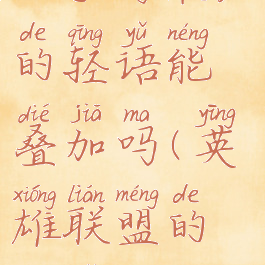 de qīng yǔ néng
的轻语能
dié jiā ma yīng
叠加吗(英
xióng lián méng de
雄联盟的